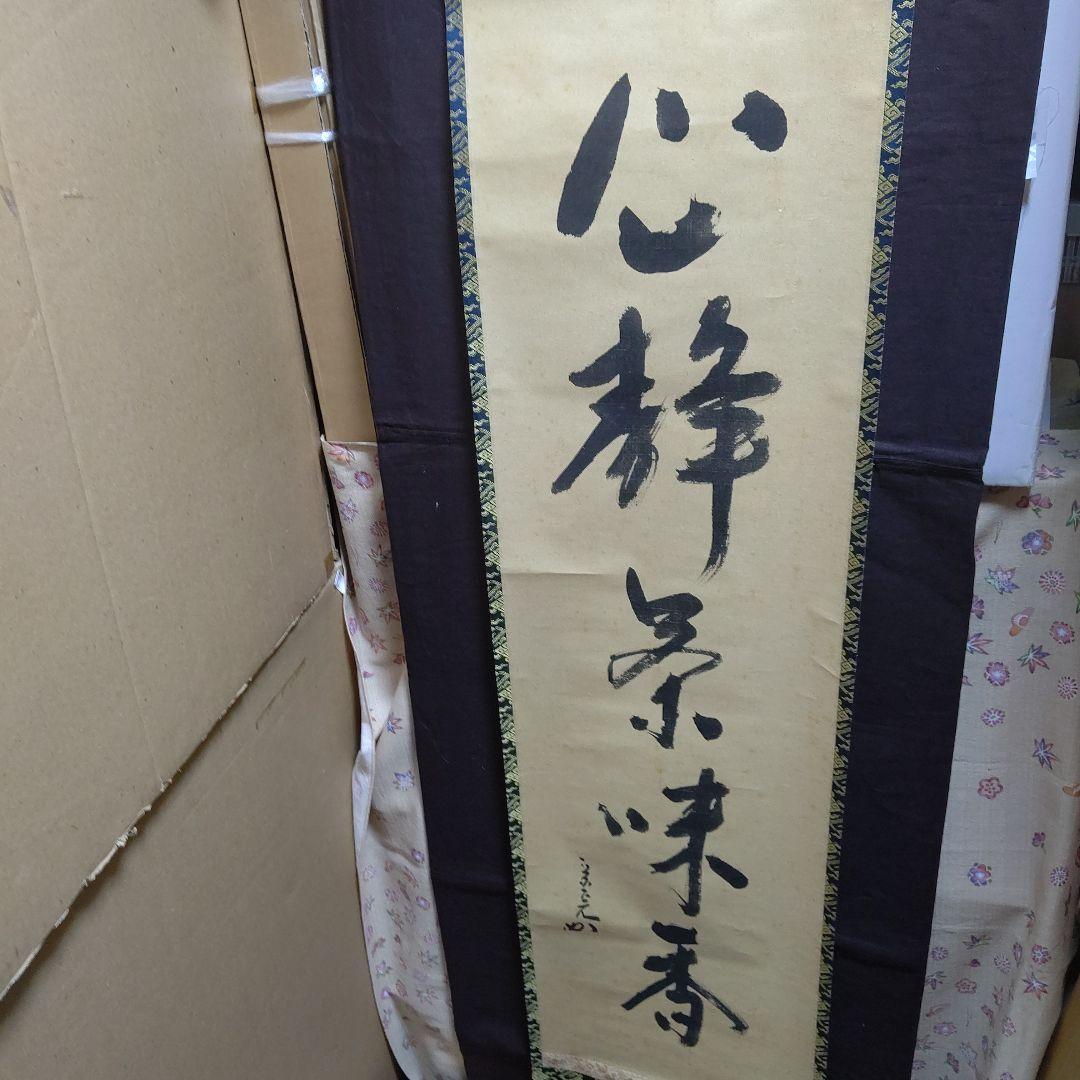 心静茶味香